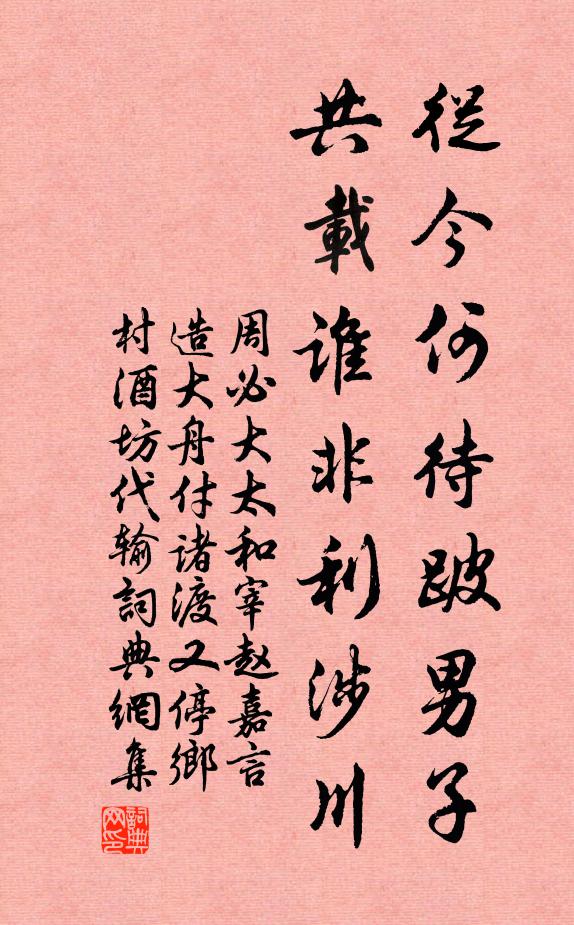 從今何待跛男子
共載誰非利涉川
周必大太和宰赵嘉言
造大舟付诸渡又停鄉
村酒坊代输詞典網集
詞典网印